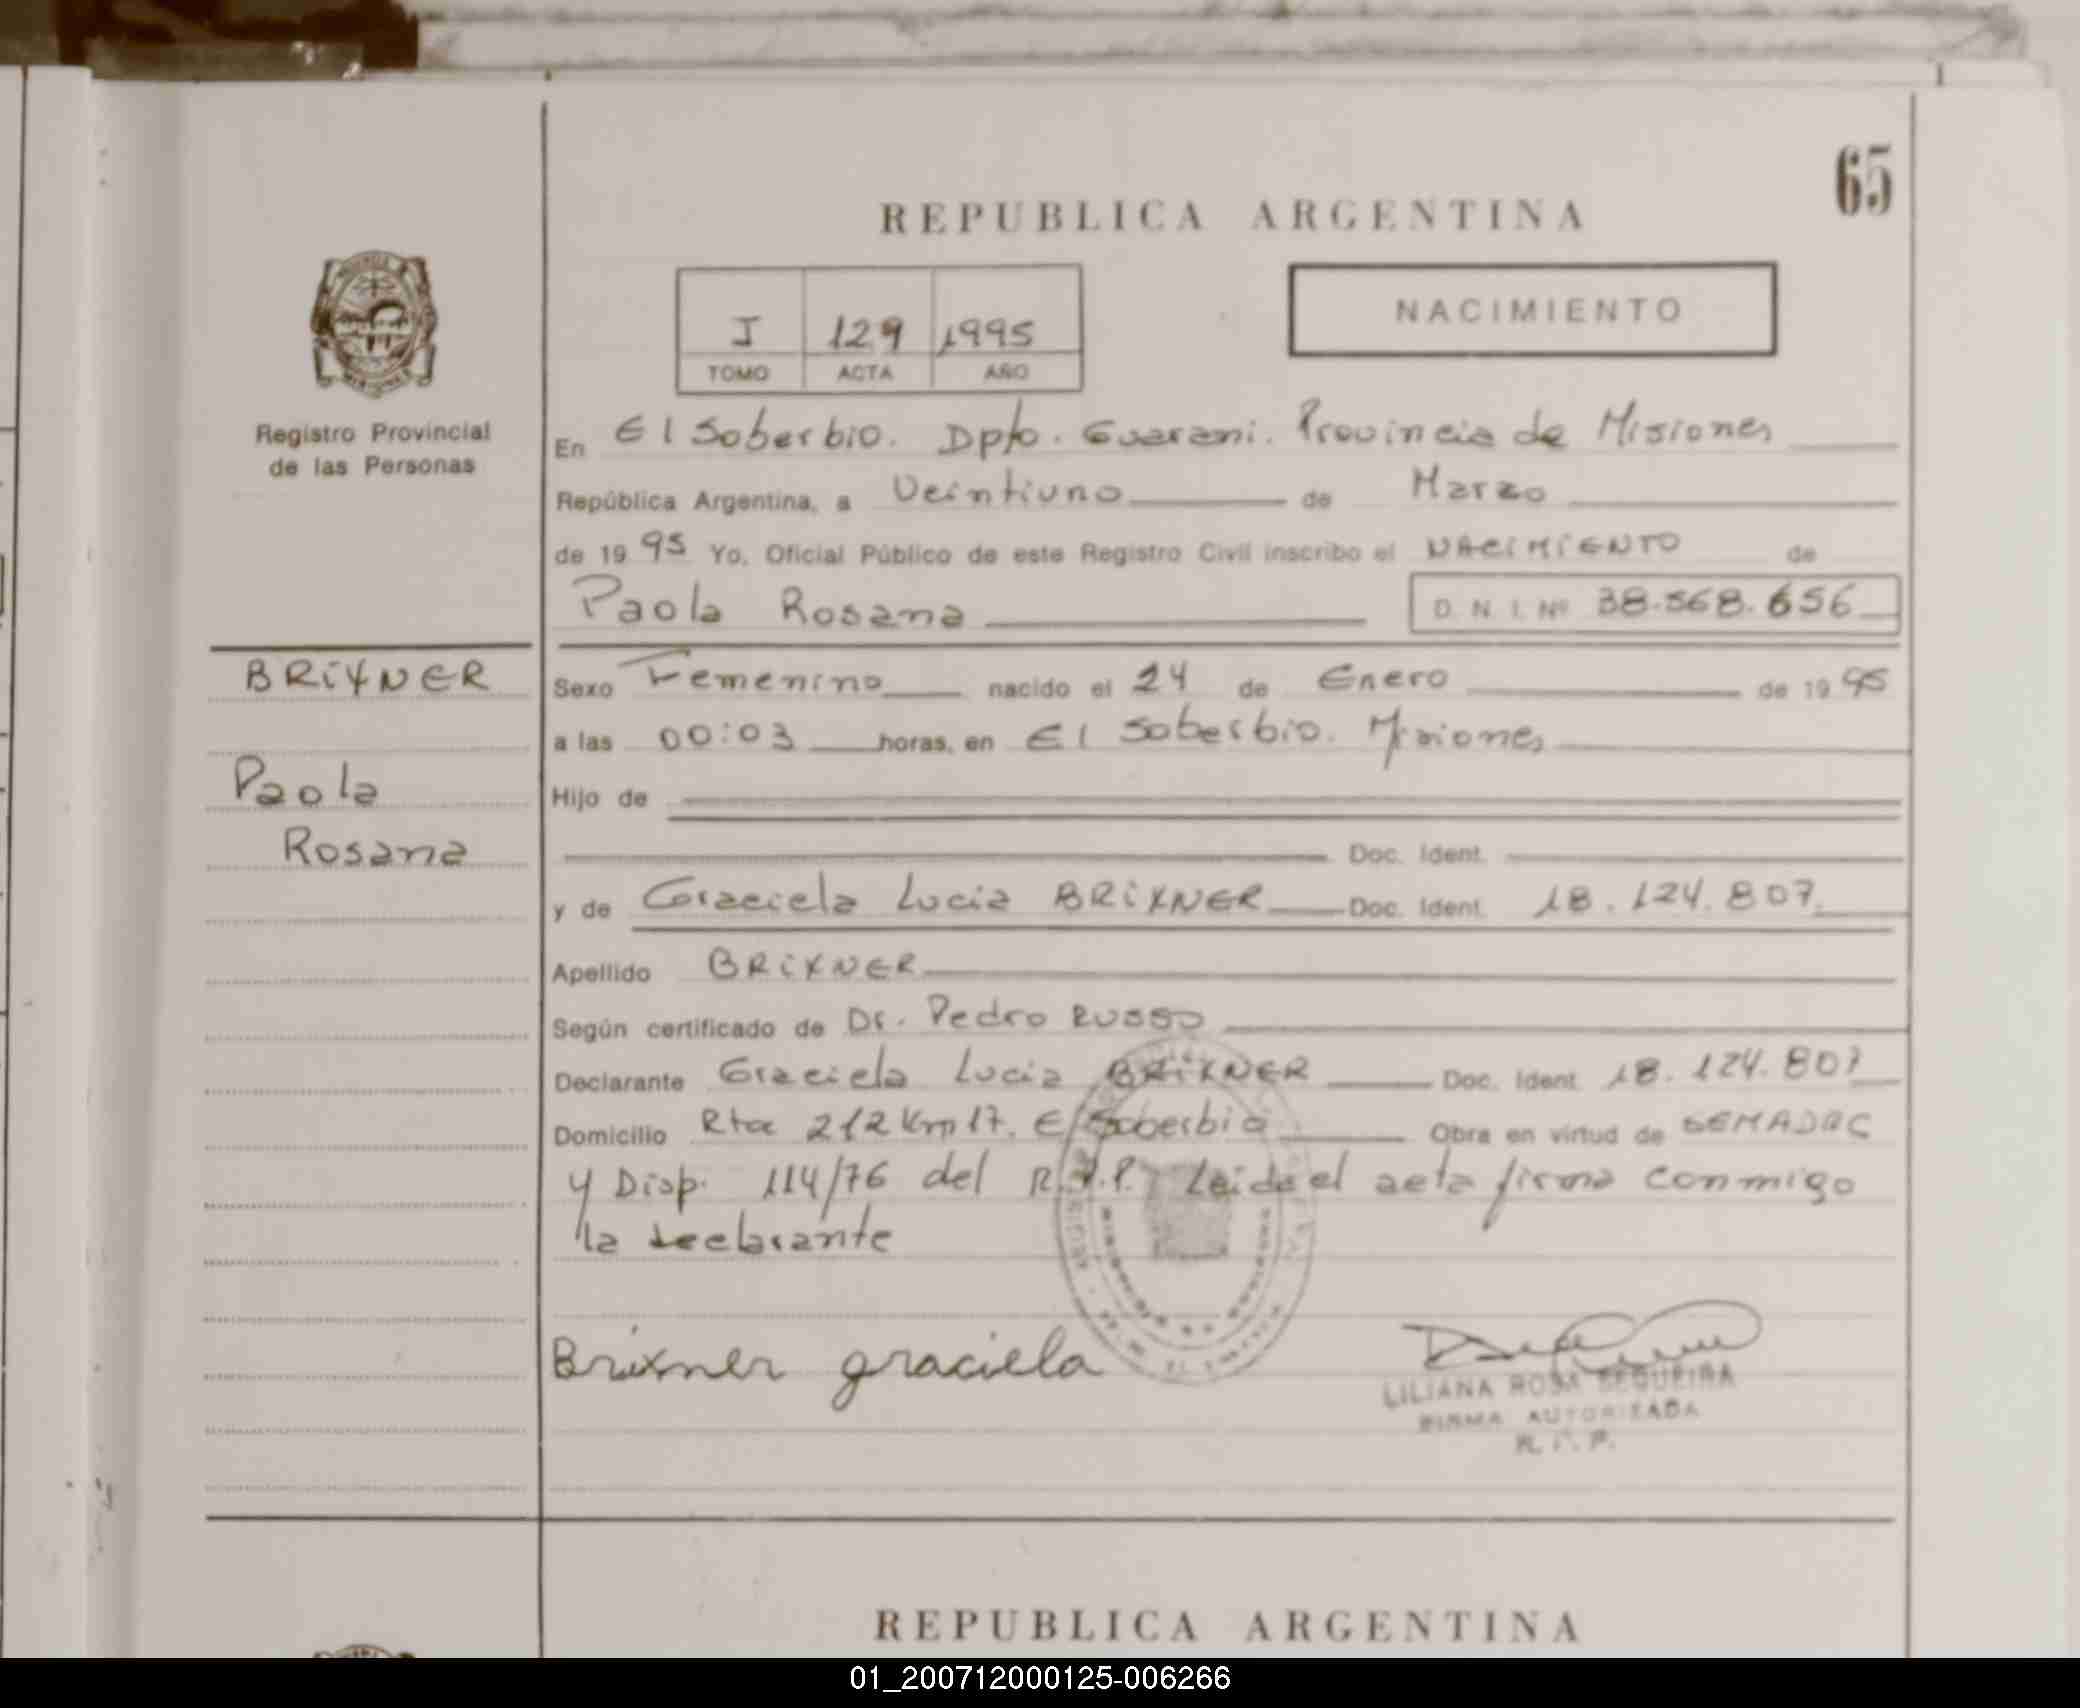 65
REPUBLICA ARGENTINA
I 129 1995
TOMO ACTA AÑO
NACIMIENTO
Registro Provincial
de las Personas
BRIXNER
Paola
Rosana
En El Soberbio. Dpto. Guarani. Provincia de Misiones
República Argentina, a Veintiuno de Marzo
de 1995 Yo, Oficial Público de este Registro Civil inscribo el NACIMIENTO de
Paola Rosana D. N. I. Nº 38.568.656
Sexo Femenino nacido el 24 de Enero de 1995
a las 00:03 horas, en El Soberbio. Misiones
Hijo de
Doc. Ident.
y de Graciela Lucia BRIXNER Doc. Ident. 18.124.807
Apellido BRIXNER
Según certificado de Dr. Pedro Russo
Declarante Graciela Lucia BRIXNER Doc. Ident. 18.124.807
Domicilio Rta 212 Km 17. El Soberbio Obra en virtud de
y Disp. 114/76 del R.P.P. Leida el acta firma conmigo
la declarante
Brixner graciela
LILIANA ROSA SEQUEIRA
FIRMA AUTORIZADA
R. P. P.
REPUBLICA ARGENTINA
01_200712000125-006266